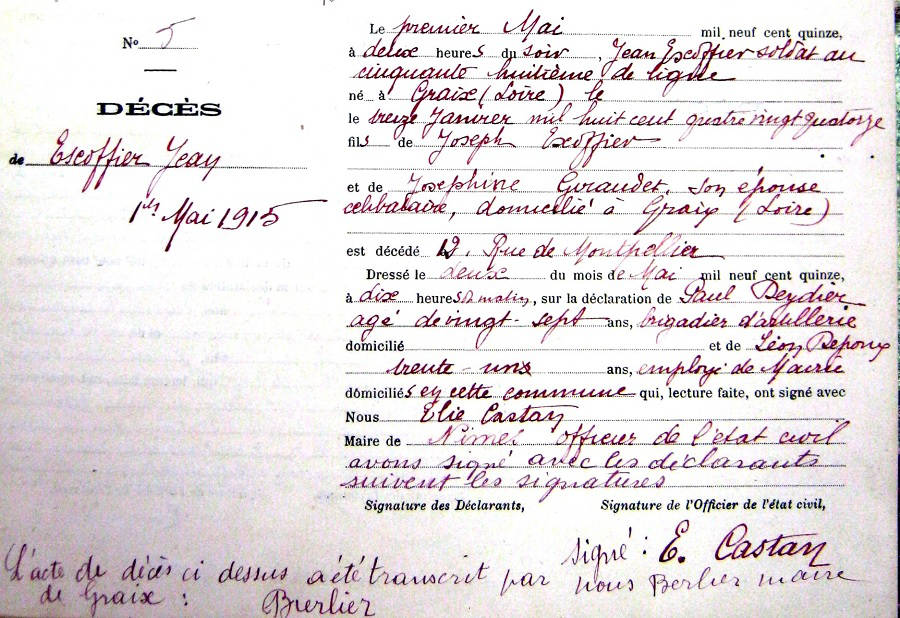 No 5
DÉCÈS
de Escoffier Jean
1er Mai 1915
Le premier Mai mil neuf cent quinze,
à deux heures du soir, Jean Escoffier soldat au
cinquante huitième de ligne
né à Graix (Loire) le
le treize Janvier mil huit cent quatre vingt quatorze
fils de Joseph Escoffier
et de Joséphine Giraudet, son épouse
célibataire, domicilié à Graix (Loire)
est décédé 12, Rue de Montpellier
Dressé le deux du mois de Mai mil neuf cent quinze,
à dix heures du matin, sur la déclaration de Paul Deydier
agé de vingt-sept ans, brigadier d'artillerie
domicilié et de Léon Depoux
trente-un ans, employé de Mairie
domiciliés en cette commune qui, lecture faite, ont signé avec
Nous Elie Castan
Maire de Nimes officier de l'état civil
avons signé avec les déclarants
suivent les signatures
Signature des Déclarants, Signature de l'Officier de l'état civil,
signé : E. Castan
L'acte de décès ci dessus a été transcrit par nous Berlier maire
de Graix : Brerlier